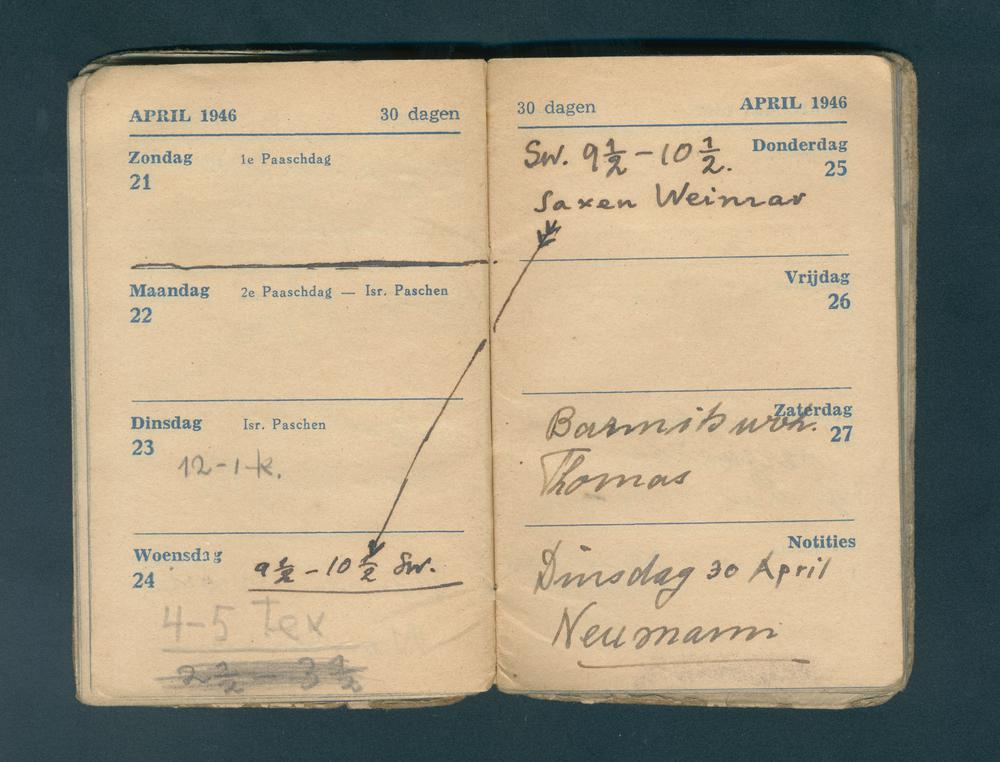 APRIL 1946 30 dagen
Zondag 1e Paaschdag
21
Maandag 2e Paaschdag — Isr. Paschen
22
Dinsdag Isr. Paschen
23
12-1 k.
Woensdag 9½ - 10½ Sw.
24
4-5 Tex
2½ - 3½
30 dagen APRIL 1946
Sw. 9½ - 10½. Donderdag
25
Saxen Weimar
Vrijdag
26
Zaterdag
27
Thomas
Notities
Dinsdag 30 April
Neumann